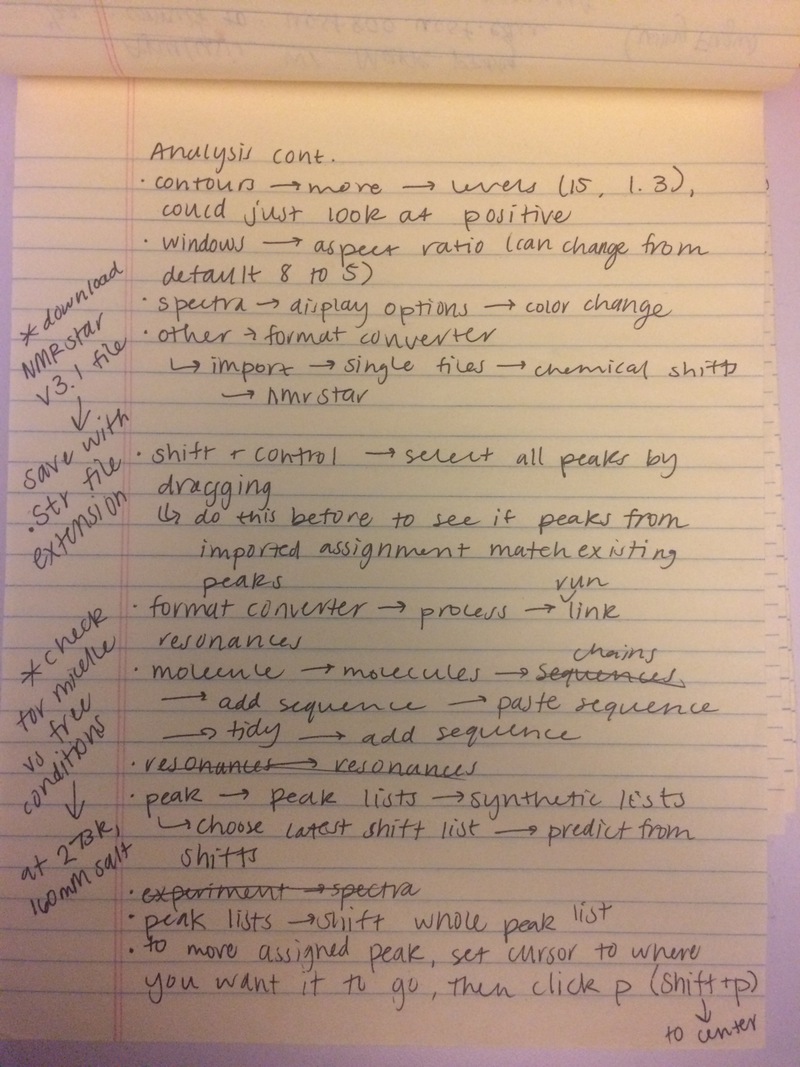 Analysis cont.
· contours → more → levels (15, 1.3),
could just look at positive
· windows → aspect ratio (can change from
default 8 to 5)
· spectra → display options → color change
· other → format converter
↳ import → single files → chemical shifts
→ nmrstar
· shift + control → select all peaks by
dragging
↳ do this before to see if peaks from
imported assignment match existing
peaks
run
· format converter → process → link
resonances
chains
· molecule → molecules → sequences
→ add sequence → paste sequence
→ tidy → add sequence
· resonances → resonances
· peak → peak lists → synthetic lists
↳ choose latest shift list → predict from
shifts
· experiment → spectra
· peak lists → shift whole peak list
· to move assigned peak, set cursor to where
you want it to go, then click p (shift+p)
↓
to center
* download
NMRstar
v3.1 file
↓
save with
.str file
extension
* check
for micelle
vs free
conditions
↓
at 273K,
160mM salt